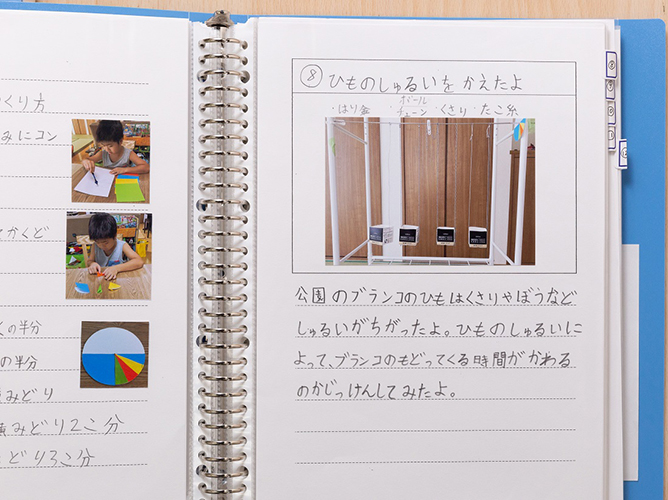 くり方
みにコン
かくど
の半分
の半分
みどり
みどり2こ分
どり3こ分
⑧ ひものしゅるいを かえたよ
・はり金 ・ボールチェーン ・くさり ・たこ糸
公園のブランコのひもはくさりやぼうなど
しゅるいがちがったよ。ひものしゅるいに
よって、ブランコのもどってくる時間がかわる
のかじっけんしてみたよ。